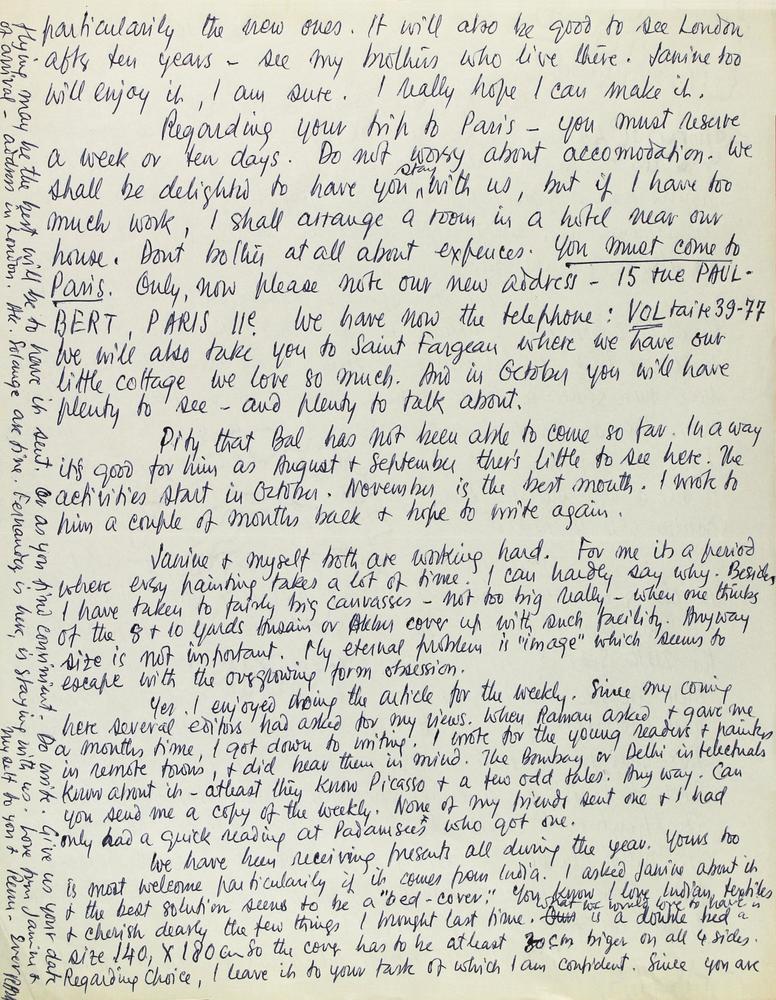 particularily the new ones. It will also be good to see London
after ten years - see my brothers who live there. Janine too
will enjoy it, I am sure. I really hope I can make it.
Regarding your trip to Paris - you must reserve
a week or ten days. Do not worry about accomodation. We
shall be delighted to have you stay with us, but if I have too
much work, I shall arrange a room in a hotel near our
house. Dont bother at all about expences. You must come to
Paris. Only, now please note our new address - 15 rue PAUL-
BERT, PARIS 11e. We have now the telephone: VOLtaire 39-77
We will also take you to Saint Fargeau where we have our
little cottage we love so much. And in October you will have
plenty to see - and plenty to talk about.
Pity that Bal has not been able to come so far. In a way
its good for him as August + September ther's little to see here. The
activities start in October. November is the best month. I wrote to
him a couple of months back & hope to write again.
Janine + myself both are working hard. For me its a period
where evry painting takes a lot of time. I can hardly say why. Besides,
I have taken to fairly big canvasses - not too big really - when one thinks
of the 8 + 10 yards Husain or Akbar cover up with such facility. Anyway
size is not important. My eternal problem is "image" which seems to
escape with the overgrowing form obsession.
Yes. I enjoyed doing the article for the weekly. Since my coming
here several editors had asked for my views. When Raman asked + gave me
a months time, I got down to writing. I wrote for the young readers + painters
in remote towns, + did hear them in mind. The Bombay or Delhi intelectuals
know about it - atleast they know Picasso + a few odd tales. Any way. Can
you send me a copy of the weekly. None of my friends sent one + I had
only had a quick reading at Padamsee's who got one.
We have been receiving presents all during the year. Yours too
is most welcome particularily if it comes from India. I asked Janine about it
+ the best solution seems to be a "bed-cover." You know I love Indian textiles
+ cherish dearly the few things I brought last time. What we would love to have is
is a double bed a
size 140, X 180 cm So the cover has to be atleast 30cm biger on all 4 sides.
Regarding choice, I leave it to your taste of which I am confident. Since you are
flying may be the best will be to have it sent. Or as you find convinient. Do write. Give us your date
of arrival - address in London. Ate. Solange are fine. Fernanda is here, is staying with us. Love from Janine +
myself to you +